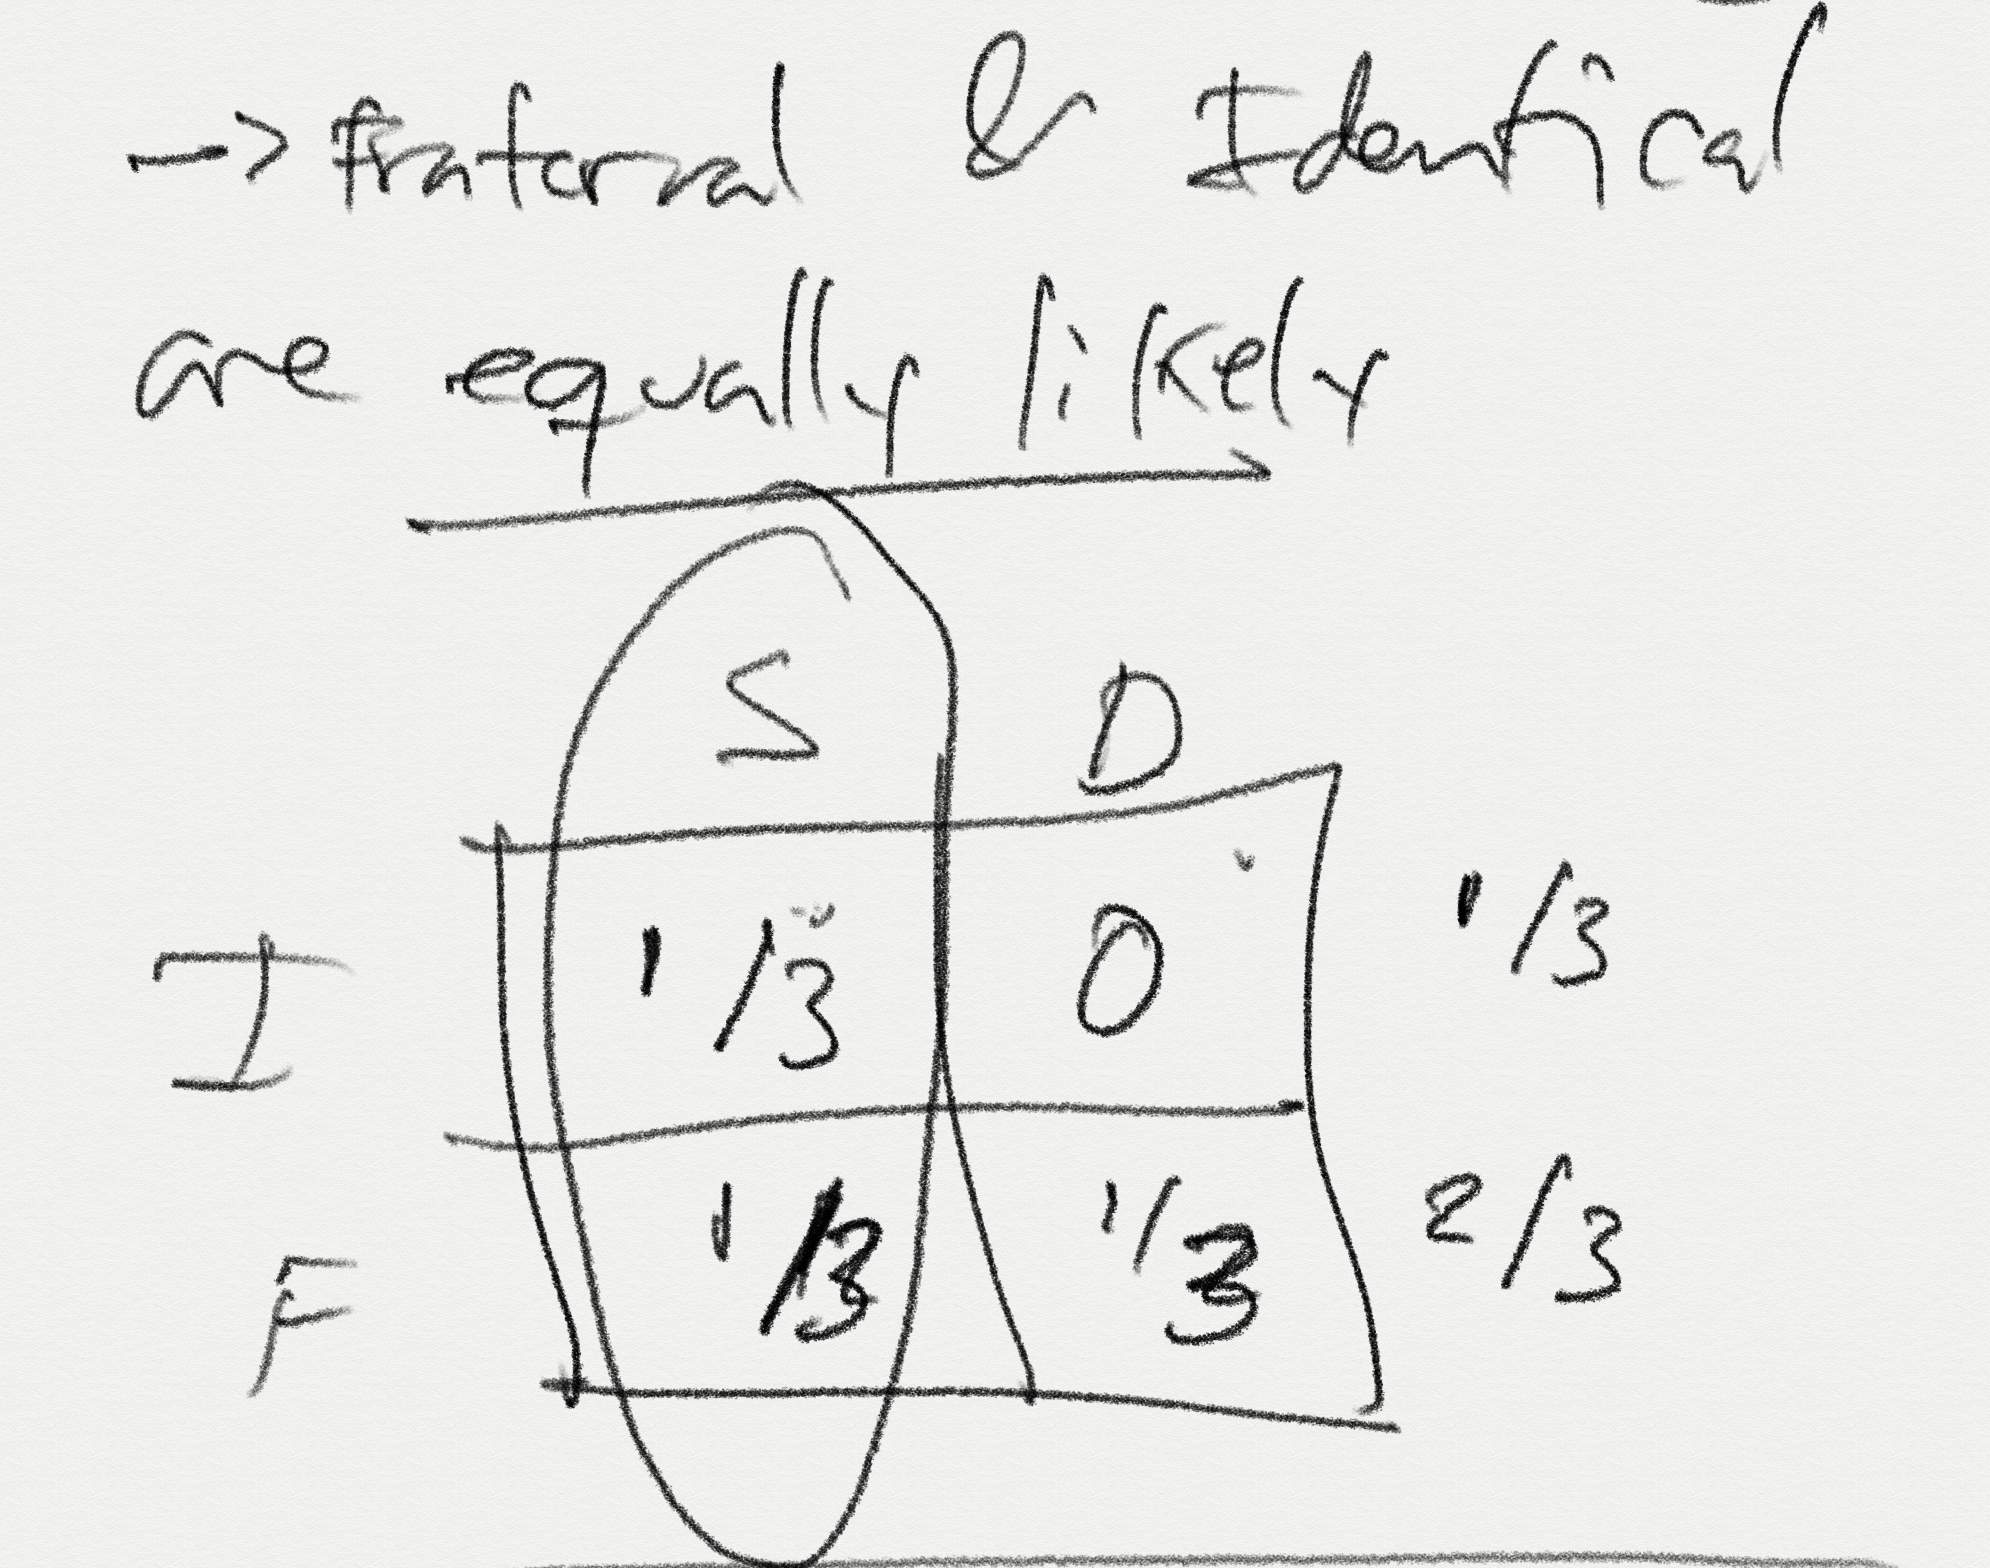 → Fraternal & Identical
are equally likely
S D
I 1/3 0 1/3
F 1/3 1/3 2/3